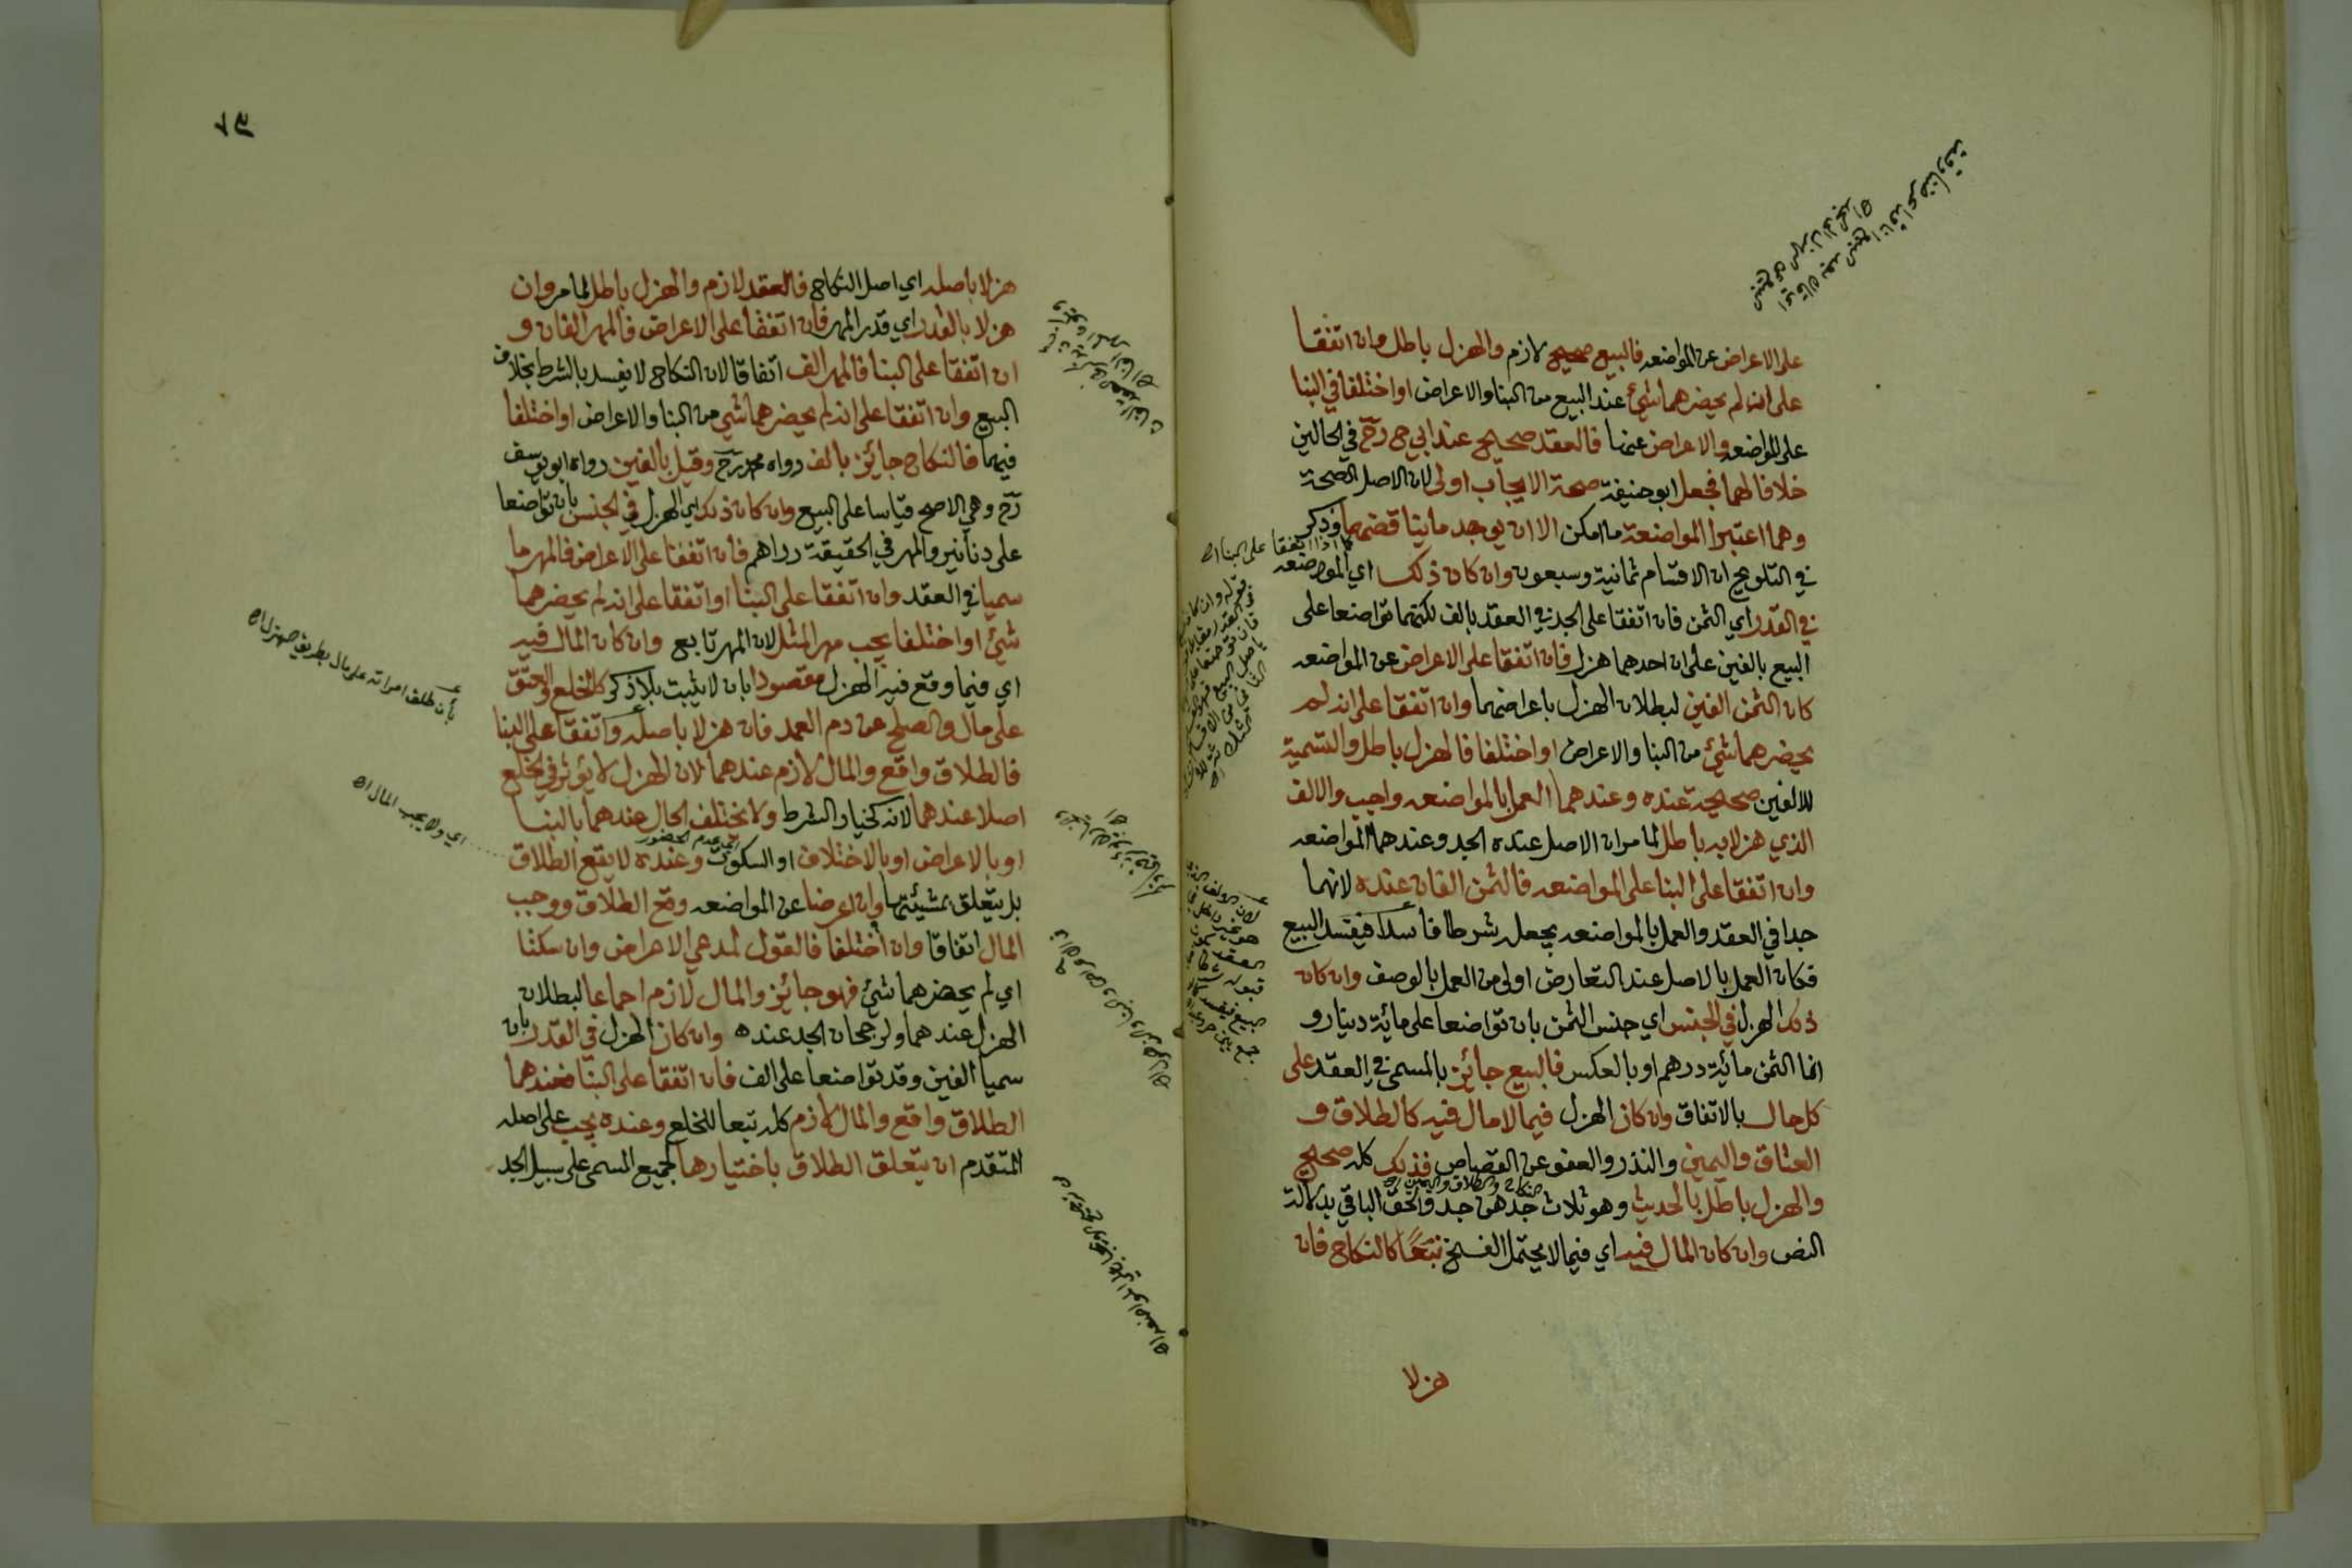 على الاعراض عن المواضعه فالبيع صحيح لازم والهزل باطل وان اتفقا
على انه لم يحضرهما شئ عند البيع من البنا والاعراض او اختلفا في البنا
على المواضعه والاعراض عنها فالعقد صحيح عند ابي ح رح في الحالين
خلافا لهما فجعل ابو حنيفة صحة الايجاب اولى لان الاصل الصحة
وهما اعتبرا المواضعة ما امكن الا ان يوجد ما يناقضهما وذكر
كما اذا اتفقا على البنا اه
في التلويح ان الاقسام ثمانية وسبعون وان كان ذلك اي المواضعه
في القدر اي الثمن فان اتفقا على الجد في العقد بالف لكنهما تواضعا على
البيع بالفين على ان احدهما هزل فان اتفقا على الاعراض عن المواضعه
كان الثمن الفين لبطلان الهزل باعراضهما وان اتفقا على انه لم
يحضرهما شئ من البنا والاعراض او اختلفا فالهزل باطل والتسمية
للالفين صحيحة عنده وعندهما العمل بالمواضعه واجب والالف
الذي هزلا به باطل لما مر ان الاصل عنده الجد وعندهما المواضعه
وان اتفقا على البنا على المواضعه فالثمن الفان عنده لانهما
جدا في العقد والعمل بالمواضعه يجعله شرطا فاسدا فيفسد البيع
فكان العمل بالاصل عند التعارض اولى من العمل بالوصف وان كان
ذلك الهزل في الجنس اي جنس الثمن بان تواضعا على مائة دينار و
انما الثمن مائية درهم او بالعكس فالبيع جائز بالمسمى في العقد على
كل حال بالاتفاق وان كان الهزل فيما لا مال فيه كالطلاق و
العتاق واليمين والنذر والعفو عن القصاص فذلك كله صحيح
النكاح والطلاق واليمين اه
والهزل باطل بالحديث وهو ثلاث جدهن جد والحق الباقي بدلالة
النص وان كان المال فيه اي فيما لا يحتمل الفسخ تبعا كالنكاح فان
هزلا
هزلا باصله اي اصل النكاح فالعقد لازم والهزل باطل لما مر وان
هزلا بالقدر اي قدر المهر فان اتفقا على الاعراض فالمهر الفان و
ان اتفقا على البنا فالمهر الف اتفاقا لان النكاح لا يفسد بالشرط بخلاف
البيع وان اتفقا على انه لم يحضرهما شئ من البنا والاعراض او اختلفا
فيهما فالنكاح جائز بالف رواه محمد رح وقيل بالفين رواه ابو يوسف
رح وهي الاصح قياسا على البيع وان كان ذلك اي الهزل في الجنس بان تواضعا
على دنانير والمهر في الحقيقة دراهم فان اتفقا على الاعراض فالمهر ما
سميا في العقد وان اتفقا على البنا او اتفقا على انه لم يحضرهما
شئ او اختلفا يجب مهر المثل لان المهر تابع وان كان المال فيه
اي فيما وقع فيه الهزل مقصودا بان لا يثبت بلا ذكر كالخلع والعتق
على مال والصلح عن دم العمد فان هزلا باصله واتفقا على البنا
فالطلاق واقع والمال لازم عندهما لان الهزل لا يؤثر في الخلع
اصلا عندهما لانه كخيار الشرط ولا يختلف الحال عندهما بالبنا
اي عدم الحضور
او بالاعراض او بالاختلاف او السكوت وعنده لا يقع الطلاق
بل يتعلق بمشيئتها وان اعرضا عن المواضعه وقع الطلاق ووجب
المال اتفاقا وان اختلفا فالقول لمدعي الاعراض وان سكتا
اي لم يحضرهما شئ فهو جائز والمال لازم اجماعا لبطلان
الهزل عندهما ولرجحان الجد عنده وان كان الهزل في القدر بان
سميا الفين وقد تواضعا على الف فان اتفقا على البنا فعندهما
الطلاق واقع والمال لازم كله تبعا للخلع وعنده يجب على اصله
المتقدم ان يتعلق الطلاق باختيارها لجميع المسمى على سبيل الجد
بأن طلق امراته على مال بطريق الهزل اه
اي ولا يجب المال اه